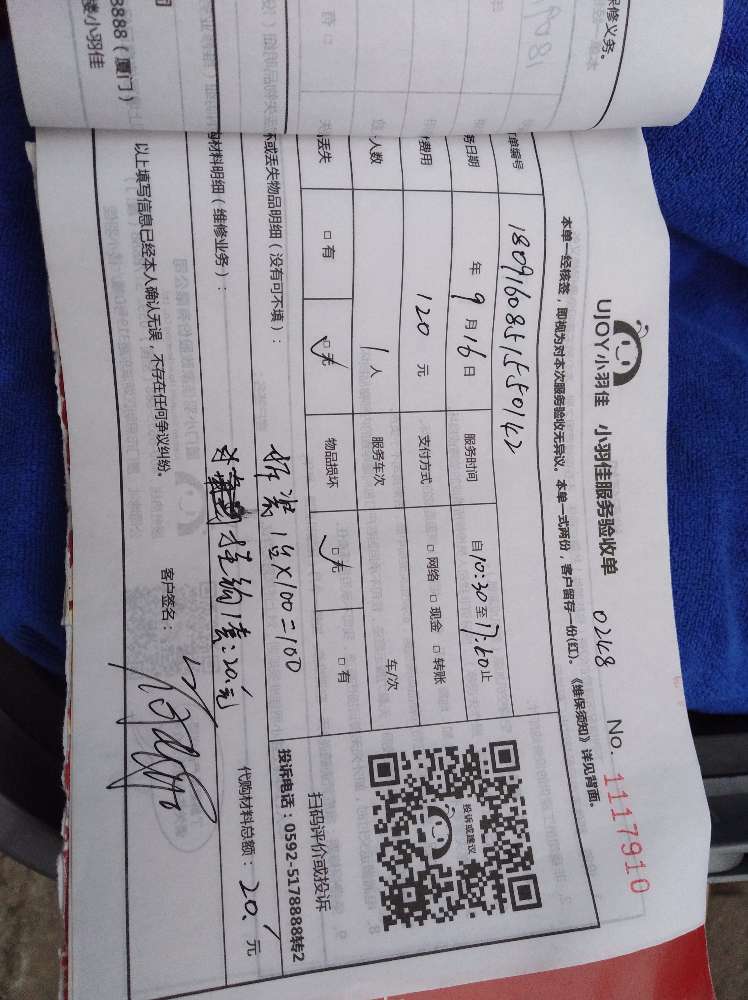 保修义务。
8888（厦门）
楼小羽佳
UJOY小羽佳 小羽佳服务验收单 0248 No. 1117910
本单一经核签，即视为对本次服务验收无异议。本单一式两份，客户留存一份(红)。《维保须知》详见背面。
单编号 1809160851550142
务日期 年 9 月 16 日 服务时间 自 10:30 至 17:50 止
费用 120 元 支付方式 □ 网络 □ 现金 □ 转账
人数 1 人 服务车次 车/次
丢失 □ 有 □ 无 物品损坏 □ 无 □ 有
投诉或建议
扫码评价或投诉
投诉电话：0592-5178888转2
坏或丢失物品明细（没有可不填）：
拆装 1台×100=100
材料明细（维修业务）：
1套:20元
代购材料总额：20. 元
以上填写信息已经本人确认无误，不存在任何争议纠纷。
客户签名：